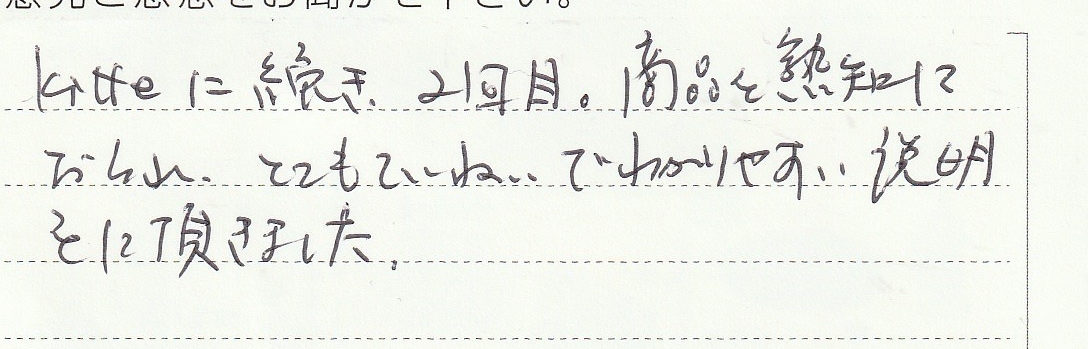 kitteに続き、2回目。商品を熟知して
おられ、とてもていねいでわかりやすい説明
をして頂きました。